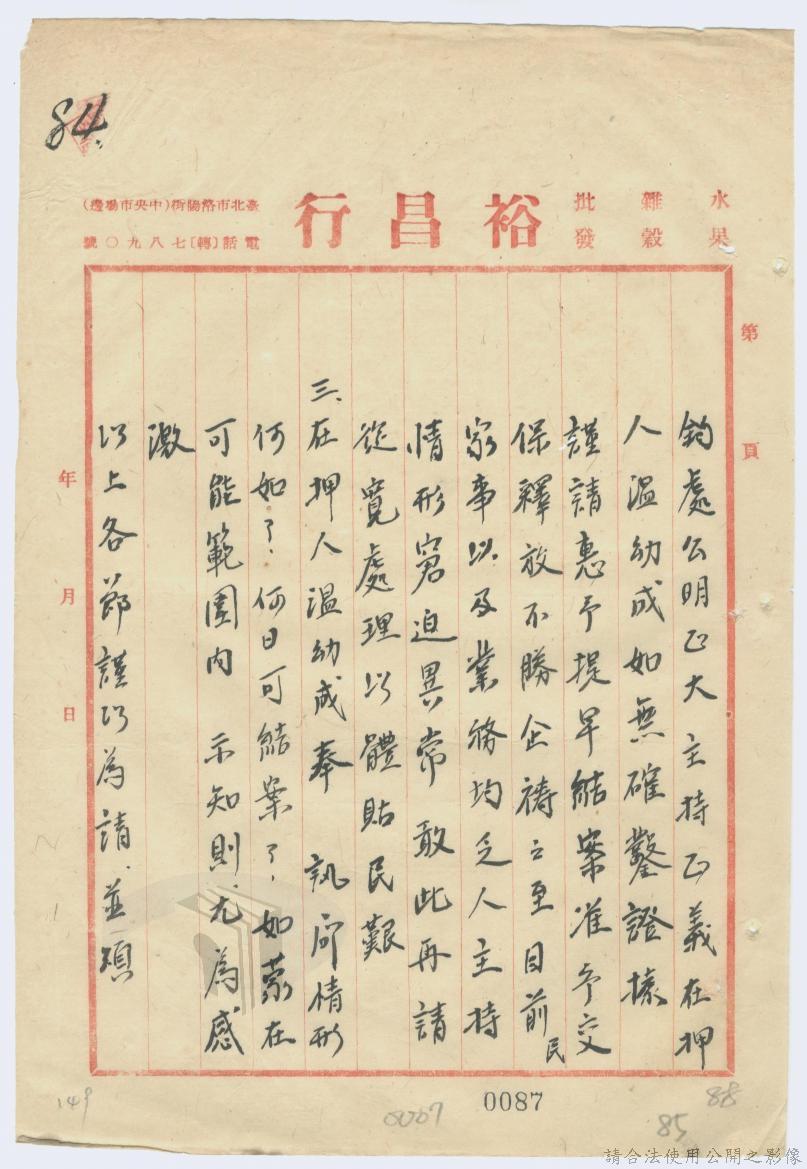 84.
水果
雜穀
批發
裕昌行
臺北市洛陽街(中央市場邊)
電話〔轉〕七八九〇號
第 頁
鈞處公明正大主持正義在押
人温幼成如無確鑿證據
謹請惠予提早結案准予交
保釋放不勝企禱之至目前民
家事以及業務均乏人主持
情形窘迫異常敢此再請
從寬處理以體貼民艱
三、在押人温幼成奉 訊所情形
何如了、何日可結案了、如蒙在
可能範圍内 示知則尤為感
激
以上各節謹以為請、並頌
年 月 日
149
0087
0087
85
88
請合法使用公開之影像